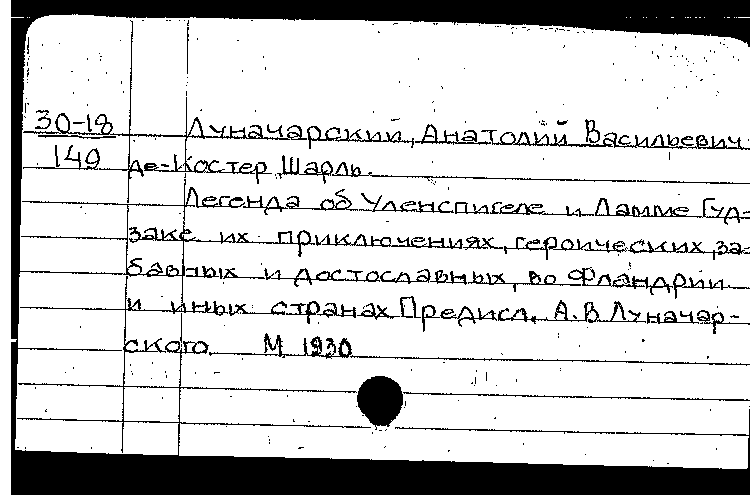 30-18 Луначарский, Анатолий Васильевич
140 де-Костер Шарль.
Легенда об Уленспигеле и Ламме Гуд-
заке их приключениях, героических, за-
бавных и достославных, во Фландрии
и иных странах Предисл. А.В Луначар-
ского. М. 1930